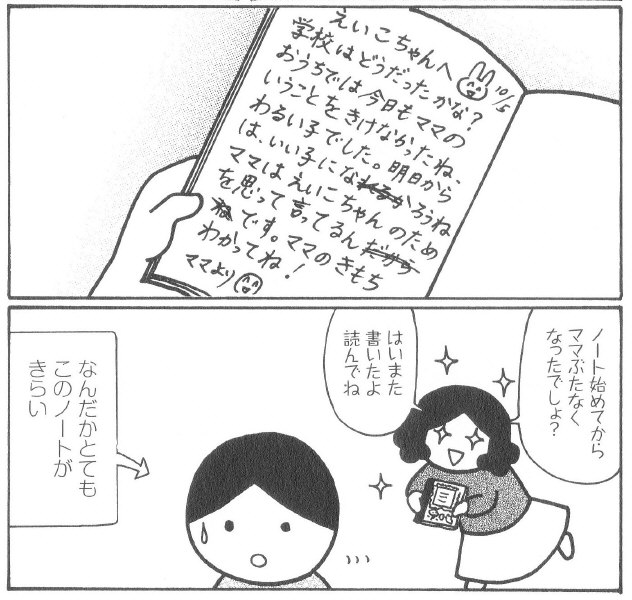 えいこちゃんへ
10/5
学校はどうだったかな?
おうちでは今日もママの
いうことをきけなかったね、
わるい子でした。明日から
は、いい子になれるかろうね
ママはえいこちゃんのため
を思って言ってるんだから
ねです。ママのきもち
わかってね!
ママより
ノート始めてから
ママぶたなく
なったでしょ?
はいまた
書いたよ
読んでね
なんだかとても
このノートが
きらい